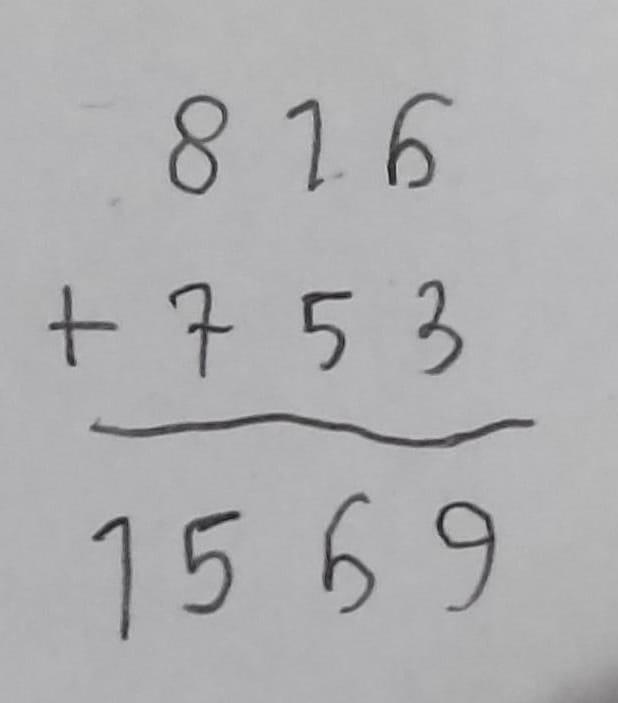 816
+ 753
1569